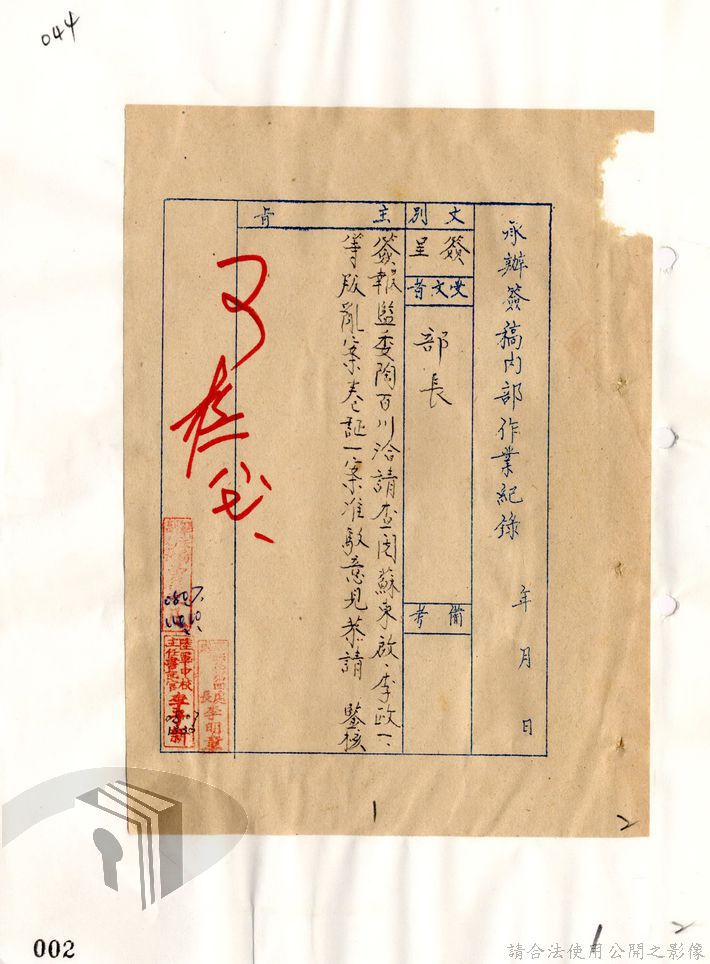 044
承辦簽稿內部作業紀錄　年　月　日
文別
簽呈
受文者
部長
備考
主旨
簽報監委陶百川洽請查閱蘇東啟、李政一、
等叛亂案卷証一案准駁意見恭請　鑒核
陸軍中校
主任書記官
長李明
1
2
1
2
002
請合法使用公開之影像